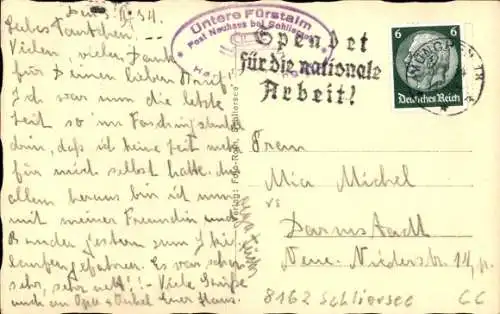 den 5. II. 34.
Liebes Tantchen
Vielen, vielen Dank
für Deinen lieben Brief!
Ich war nun die letzte
Zeit so im Faschingstrubel
drin, daß ich keine Zeit mehr
für mich selbst hatte.
allem heraus bin ich nun
mit meiner Freundin und
Bruder gestern zum Ski
laufen gefahren. Es war schon
sehr, sehr nett! - Viele Grüße
auch an Opa + Onkel Euer Hans.
Untere Fürstalm
Post Neuhaus bei Schliersee
Spendet
für die nationale
Arbeit!
MÜNCHEN 18
6 6
Deutsches Reich
Verlag: Foto-Roth, Schliersee
Frau
Mia Michel
Darmstadt
Neue Niederstr. 14, p.
8162 Schliersee
CC